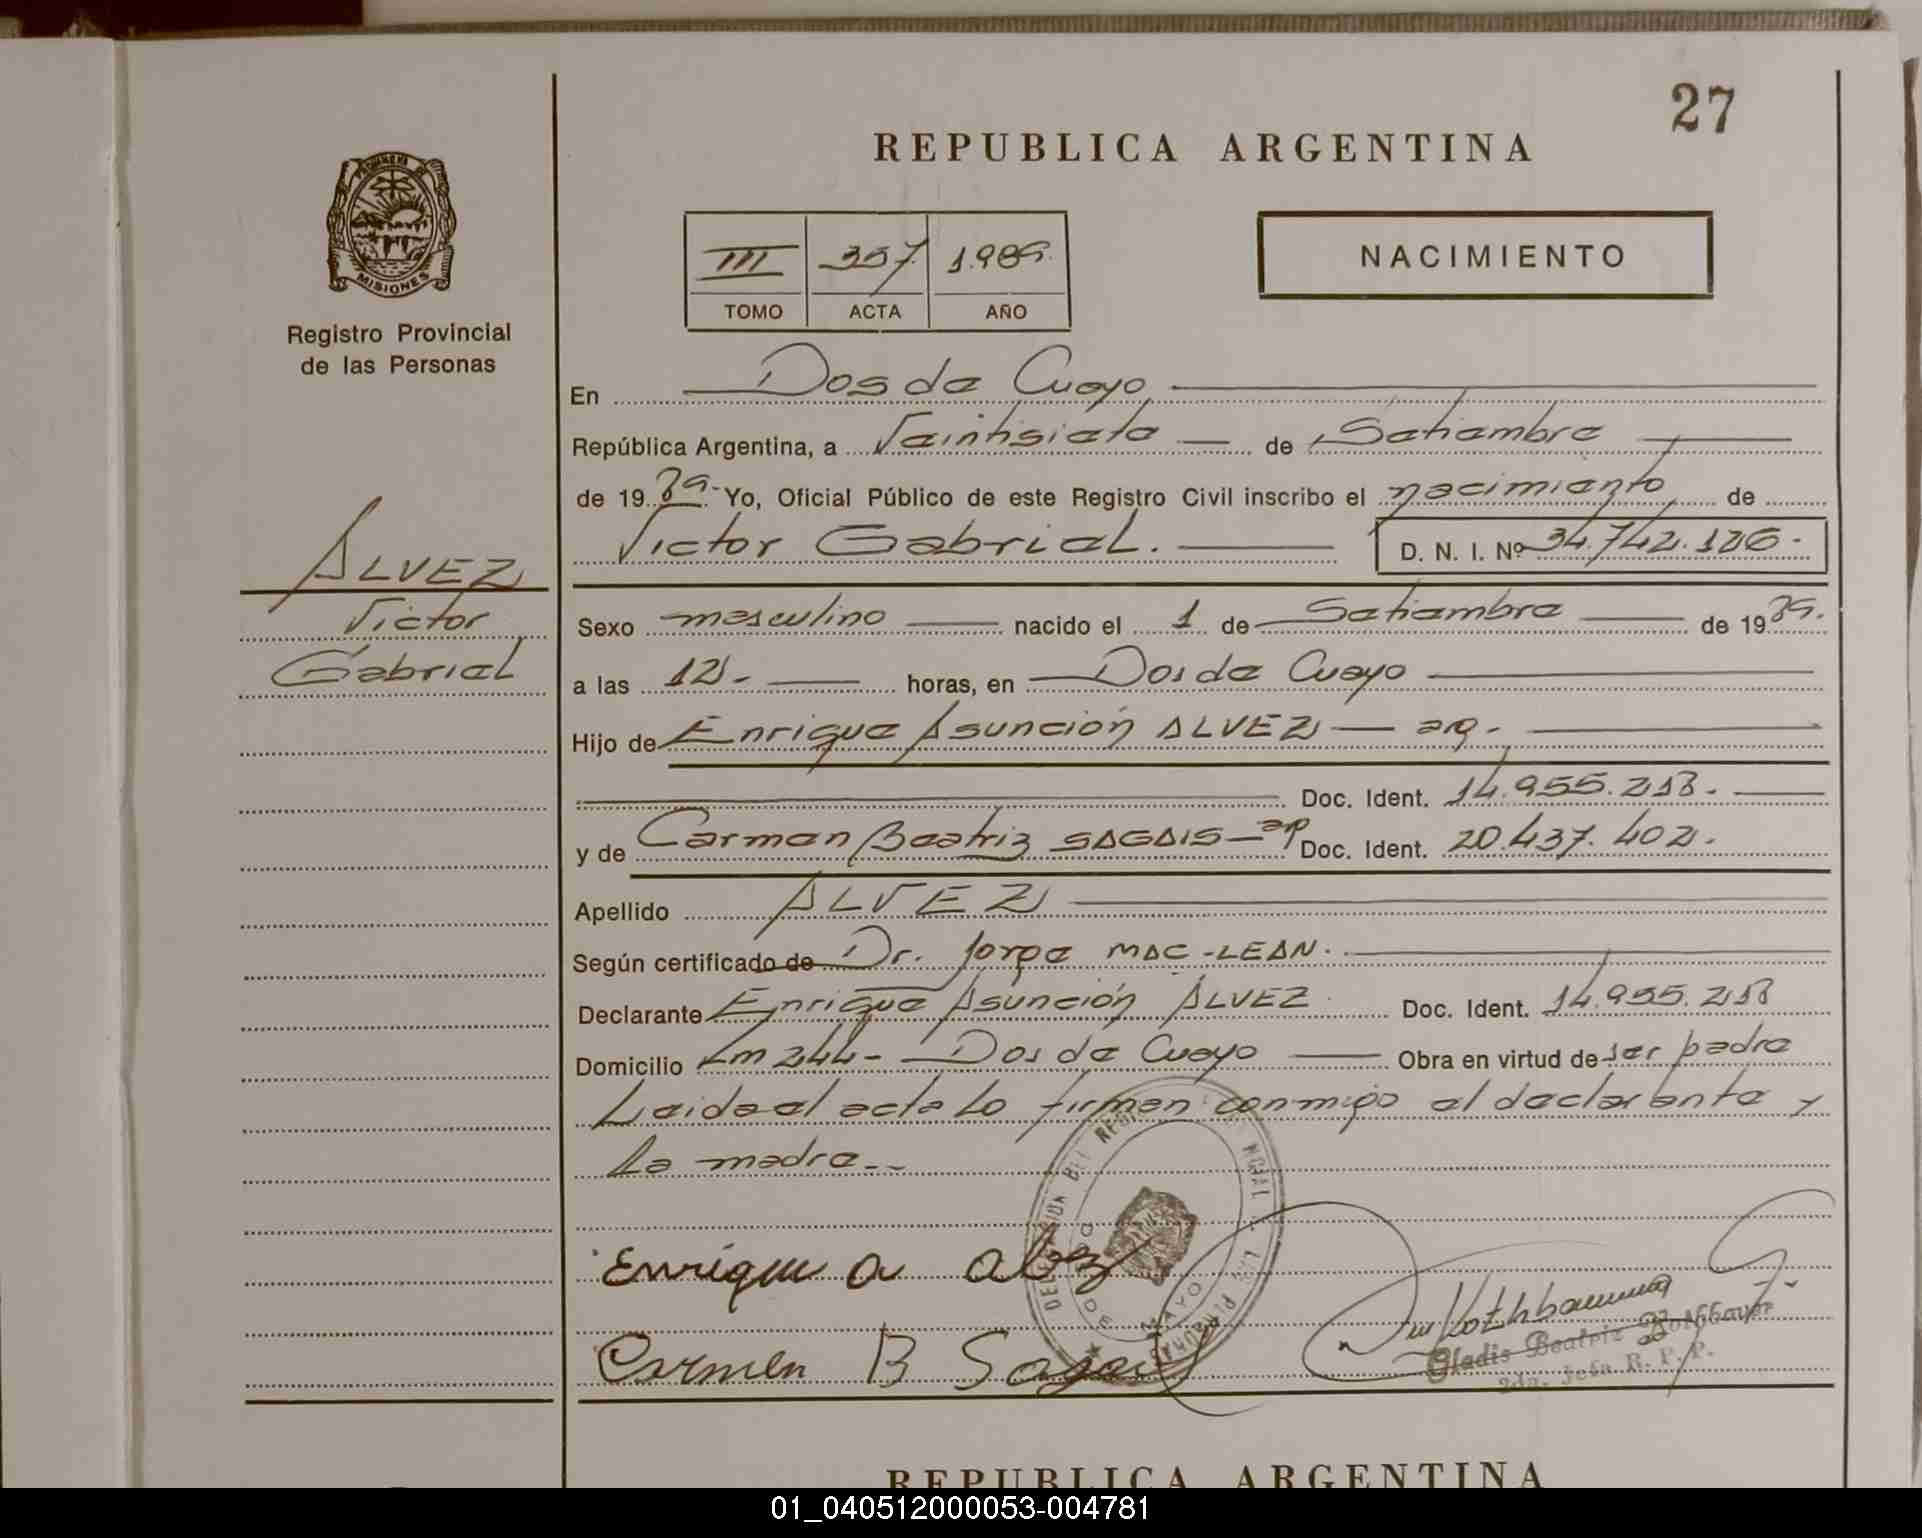 27
REPUBLICA ARGENTINA
PROVINCIA DE
MISIONES
Registro Provincial
de las Personas
III 357 1.989.
TOMO ACTA AÑO
NACIMIENTO
En Dos de Mayo
República Argentina, a Veintisiete de Setiembre
de 19 89.- Yo, Oficial Público de este Registro Civil inscribo el nacimiento de
Victor Gabriel. D. N. I. Nº 34.742.126.-
ALVEZ
Victor
Gabriel
Sexo masculino nacido el 1 de Setiembre de 19 89.
a las 12.- horas, en Dos de Mayo
Hijo de Enrique Asunción ALVEZ — arg.
Doc. Ident. 14.955.218.-
y de Carmen Beatriz SAGAIS — arg Doc. Ident. 20.437.402.
Apellido ALVEZ
Según certificado de Dr. Jorge MAC-LEAN.
Declarante Enrique Asunción ALVEZ Doc. Ident. 14.955.218
Domicilio Km 244- Dos de Mayo Obra en virtud de ser padre
Leida el acta lo firman conmigo el declarante y
la madre.--
Enrique a alvez
Carmen B
Gladis Beatriz
2da. Jefa R. P. P.
REPUBLICA ARGENTINA
01_040512000053-004781